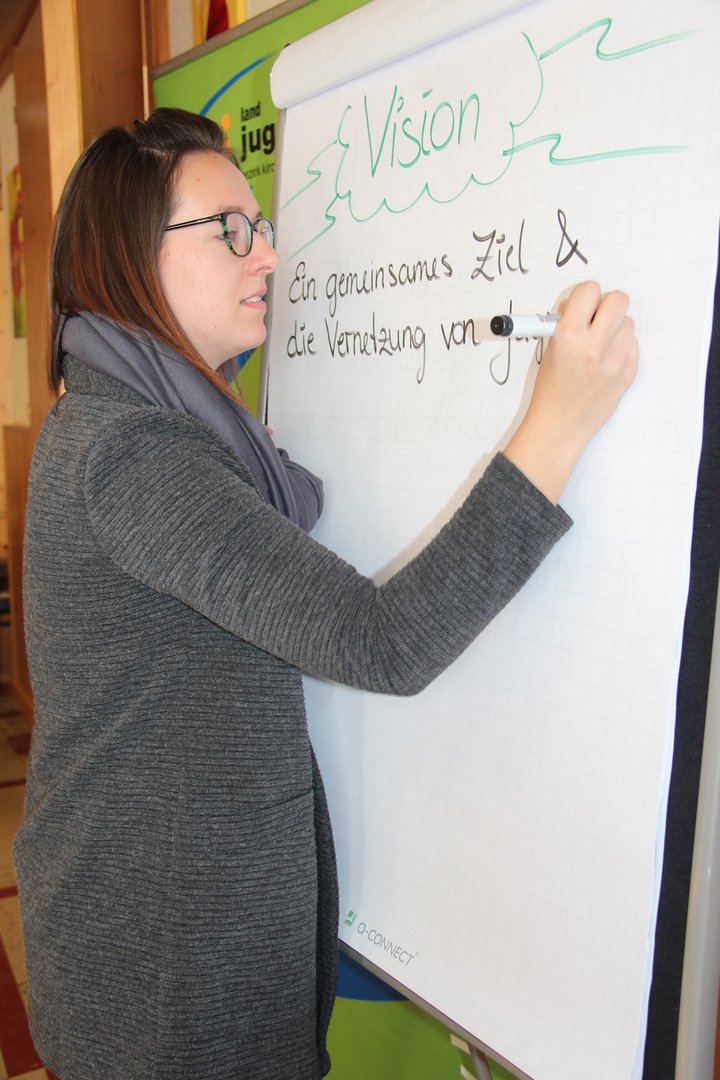 land
jug
Vision
Ein gemeinsames Ziel &
die Vernetzung von
Q-CONNECT